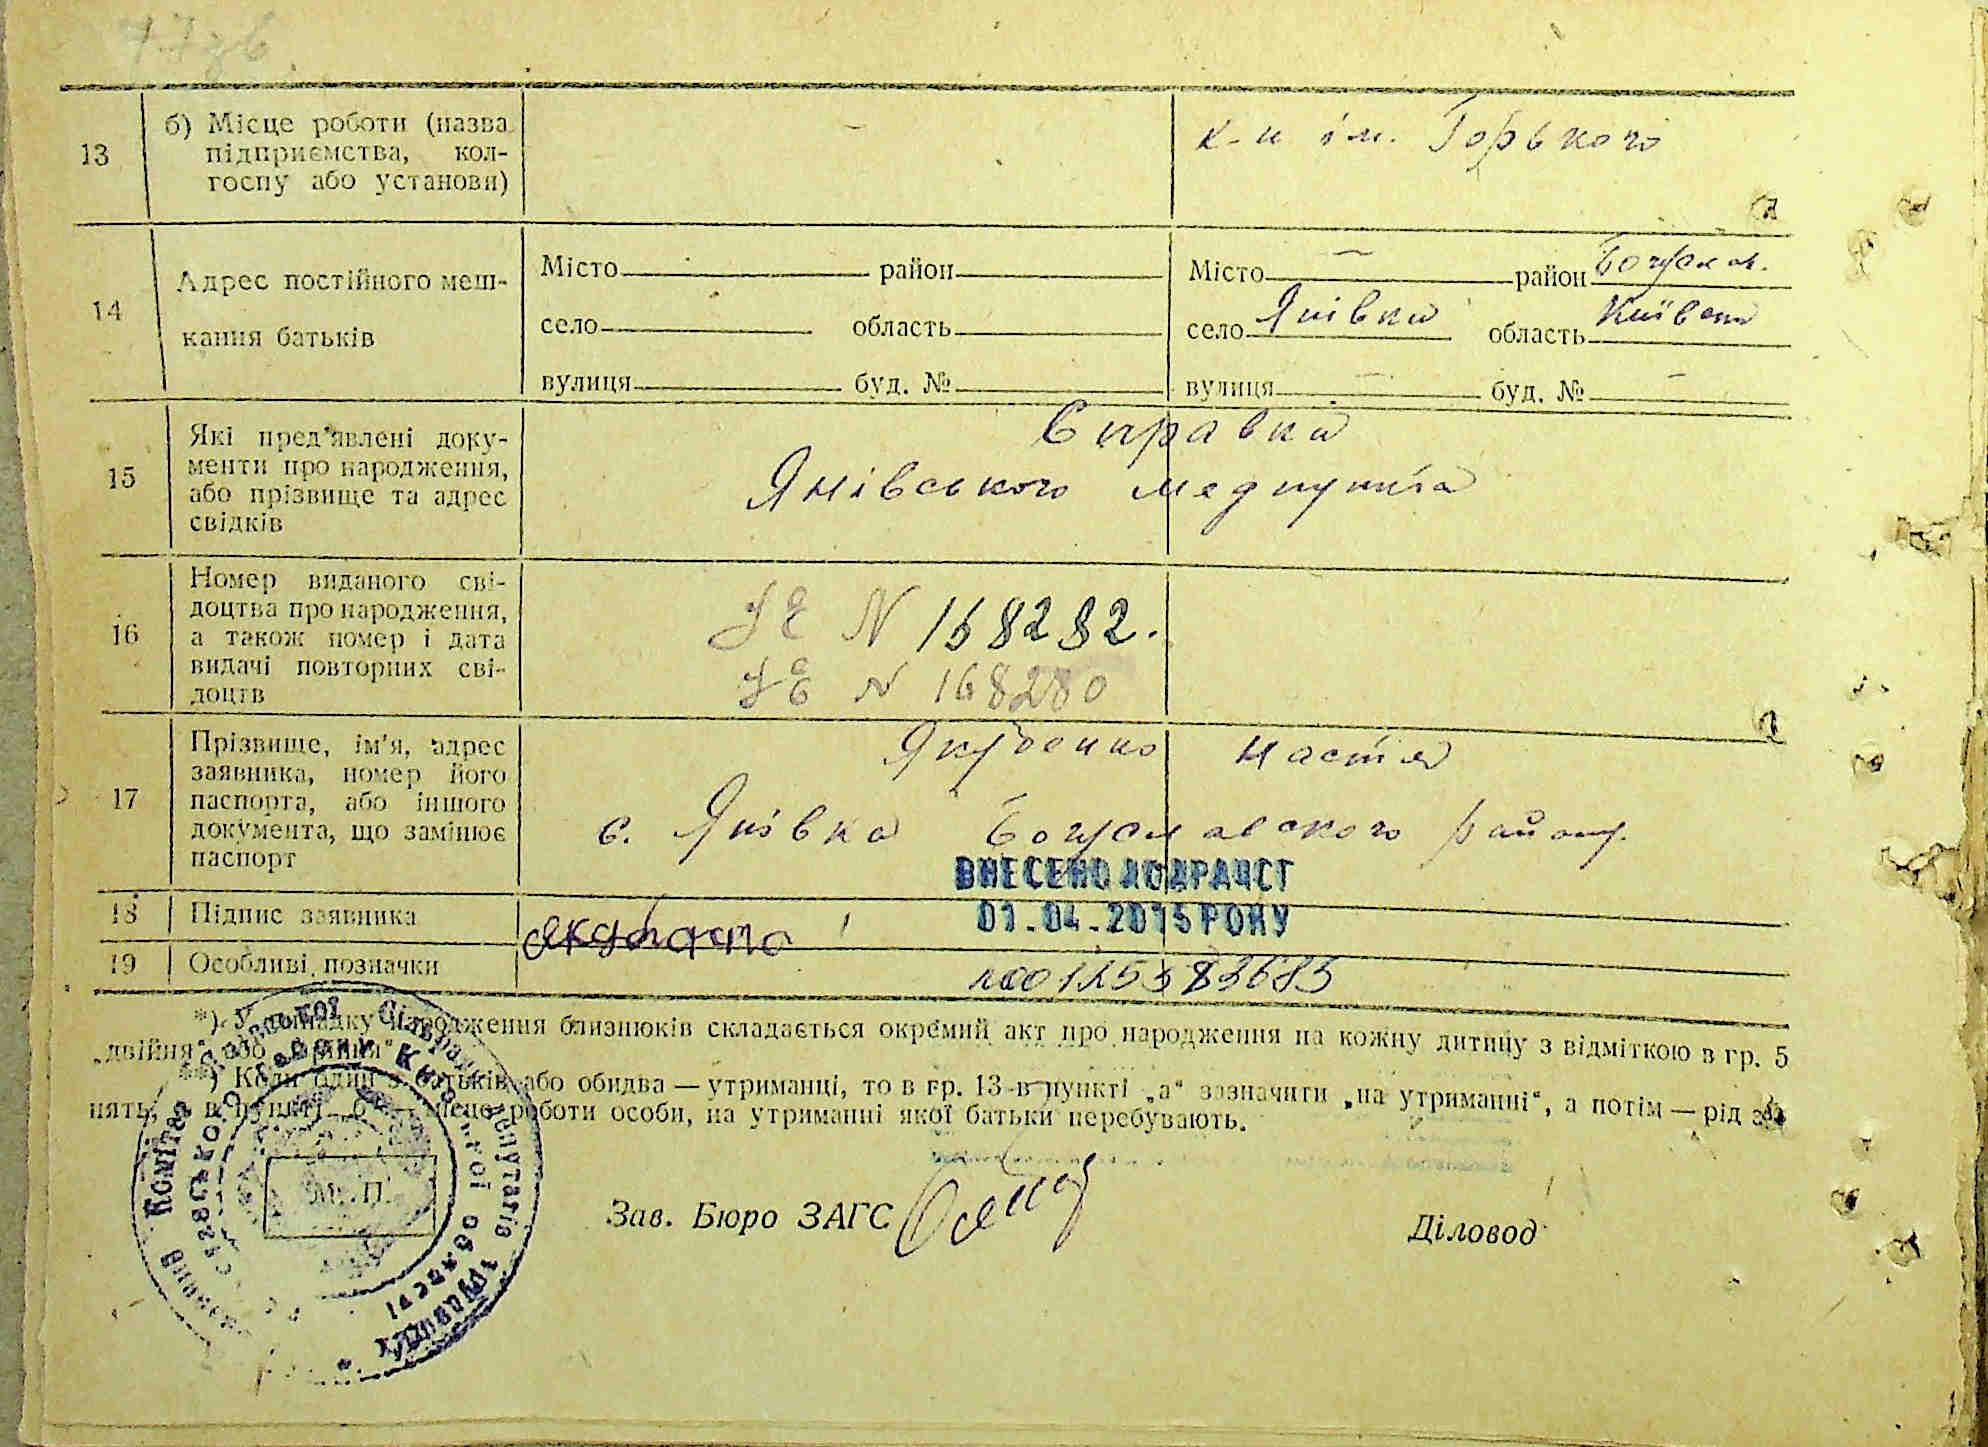 77зв
13
б) Місце роботи (назва
підприємства, кол-
госпу або установи)
к-п ім. Горького
14
Адрес постійного меш-
кання батьків
Місто район
село область
вулиця буд. №
Місто — район Богуслав.
село Янівка область Київськ
вулиця — буд. № —
15
Які пред'явлені доку-
менти про народження,
або прізвище та адрес
свідків
Справка
Янівського медпункта
16
Номер виданого сві-
доцтва про народження,
а також номер і дата
видачі повторних сві-
доцтв
ЈЕ N 168282.
ЈЕ N 168280
17
Прізвище, ім'я, адрес
заявника, номер його
паспорта, або іншого
документа, що замінює
паспорт
Настя
с. Янівка Богуславского району.
ВНЕСЕНО ДО ДРАЦСГ
01.04.2015 РОКУ
18
Підпис заявника
19
Особливі позначки
*) У випадку народження близнюків складається окремий акт про народження на кожну дитину з відміткою в гр. 5
„двійня“ або „трійня“.
) Коли один з батьків або обидва — утриманці, то в гр. 13 в пункті „а“ зазначити „на утриманні“, а потім — рід за-
нять, а в пункті „б“ — місце роботи особи, на утриманні якої батьки перебувають.
М. П.
Зав. Бюро ЗАГС
Діловод